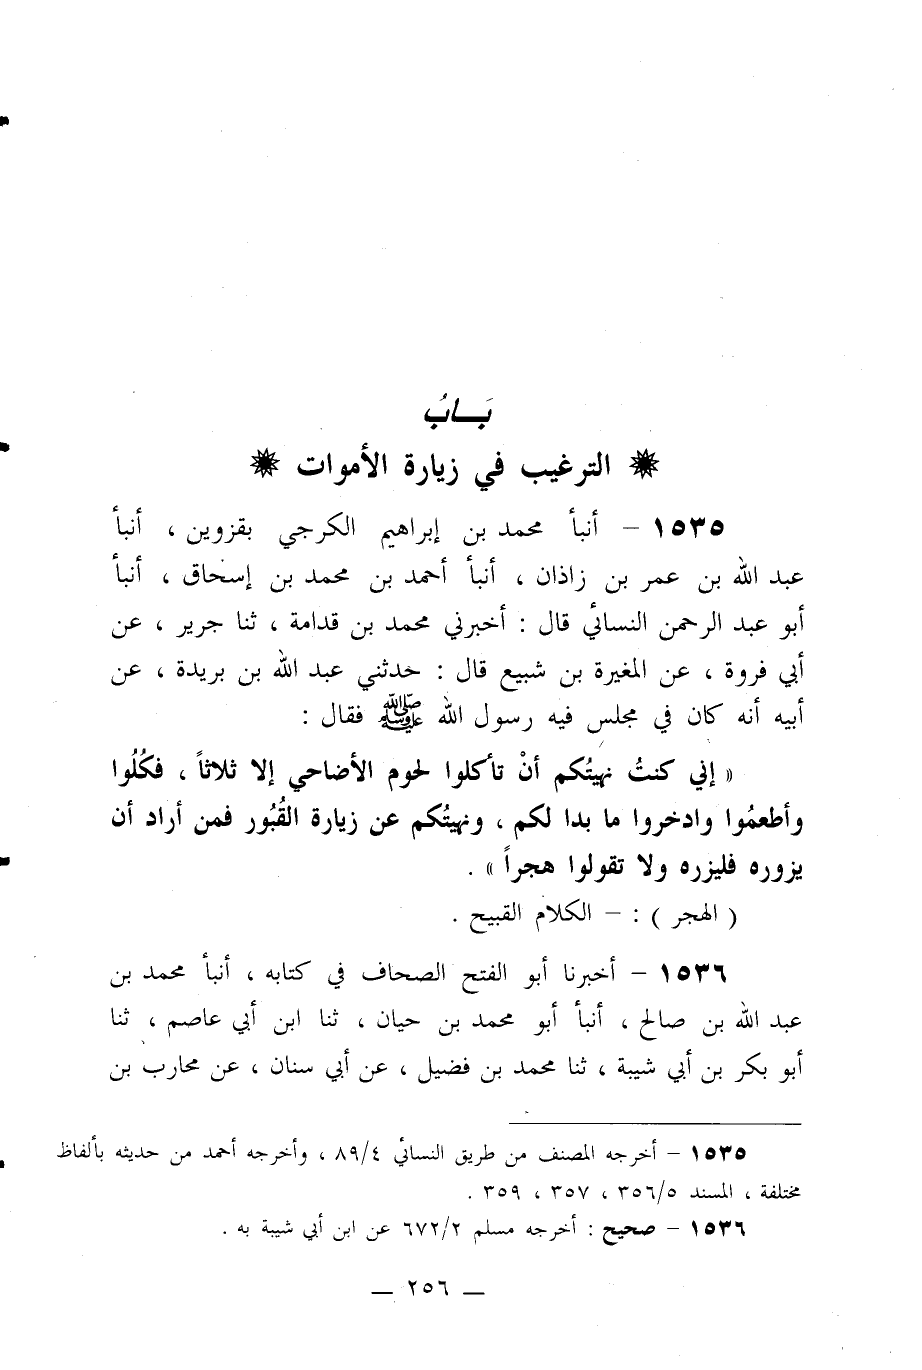 بَــابُ
❋ الترغيب في زيارة الأموات ❋
١٥٣٥ – أنبأ محمد بن إبراهيم الكرجي بقزوين ، أنبأ
عبد الله بن عمر بن زاذان ، أنبأ أحمد بن محمد بن إسحاق ، أنبأ
أبو عبد الرحمن النسائي قال : أخبرني محمد بن قدامة ، ثنا جرير ، عن
أبي فروة ، عن المغيرة بن شبيع قال : حدثني عبد الله بن بريدة ، عن
أبيه أنه كان في مجلس فيه رسول الله ﷺ فقال :
« إني كنتُ نهيتُكم أنْ تأكلوا لحوم الأضاحي إلا ثلاثاً ، فكُلُوا
وأطعمُوا وادخروا ما بدا لكم ، ونهيتُكم عن زيارة القُبُور فمن أراد أن
يزوره فليزره ولا تقولوا هجراً » .
( الهجر ) : – الكلام القبيح .
١٥٣٦ – أخبرنا أبو الفتح الصحاف في كتابه ، أنبأ محمد بن
عبد الله بن صالح ، أنبأ أبو محمد بن حيان ، ثنا ابن أبي عاصم ، ثنا
أبو بكر بن أبي شيبة ، ثنا محمد بن فضيل ، عن أبي سنان ، عن محارب بن
١٥٣٥ – أخرجه المصنف من طريق النسائي ٨٩/٤ ، وأخرجه أحمد من حديثه بألفاظ
مختلفة ، المسند ٣٥٦/٥ ، ٣٥٧ ، ٣٥٩ .
١٥٣٦ – صحيح : أخرجه مسلم ٦٧٢/٢ عن ابن أبي شيبة به .
— ٢٥٦ —